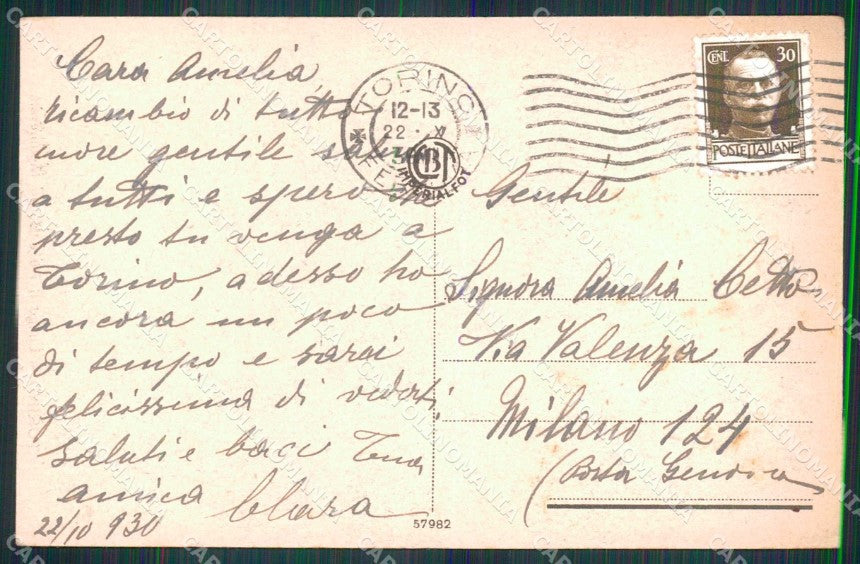 Cara Amelia,
ricambio di tutto
cuore gentile saluto
a tutti e spero che
presto tu venga a
Torino, adesso ho
ancora un poco
di tempo e sarei
felicissima di vederti,
saluti e baci Tua
amica Clara
22/10 930
TORINO
12-13
22 · X
FERR
IMPERIALFOT
CENT. 30
POSTE ITALIANE
Gentile
Signora Amelia Cetto
Via Valenza 15
Milano 124
(Porta Genova
57982
CARTOLINOMANIA